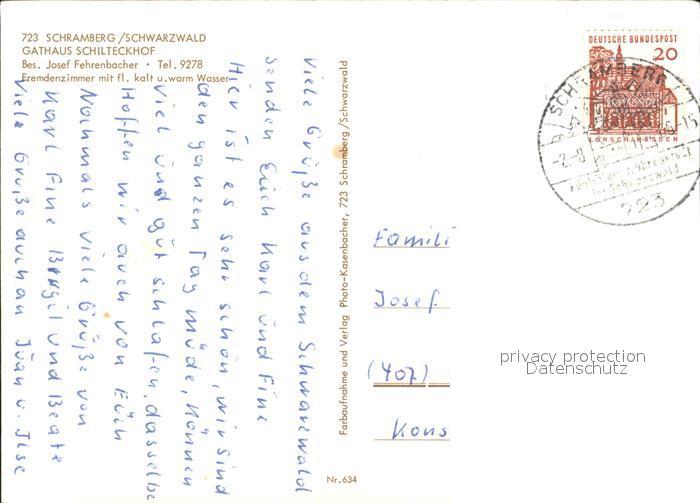 723 SCHRAMBERG/SCHWARZWALD
GATHAUS SCHILTECKHOF
Bes. Josef Fehrenbacher · Tel. 9278
Fremdenzimmer mit fl. kalt u. warm Wasser
Viele Grüße aus dem Schwarzwald
senden Euch Karl und Fine
Hier ist es sehr schön, wir sind
den ganzen Tag müde, können
viel und gut schlafen, dasselbe
Hoffen wir auch von Euch
Nochmals viele Grüße von
Karl Fine Birgit und Beate
Viele Grüße auch an Jüan u. Ilse
Farbaufnahme und Verlag Photo-Kasenbacher, 723 Schramberg/Schwarzwald
Nr. 634
DEUTSCHE BUNDESPOST
20
LORSCH/HESSEN
SCHRAMBERG
im Schwarzwald
723
Famili
Josef
(407)
Kons
privacy protection
Datenschutz